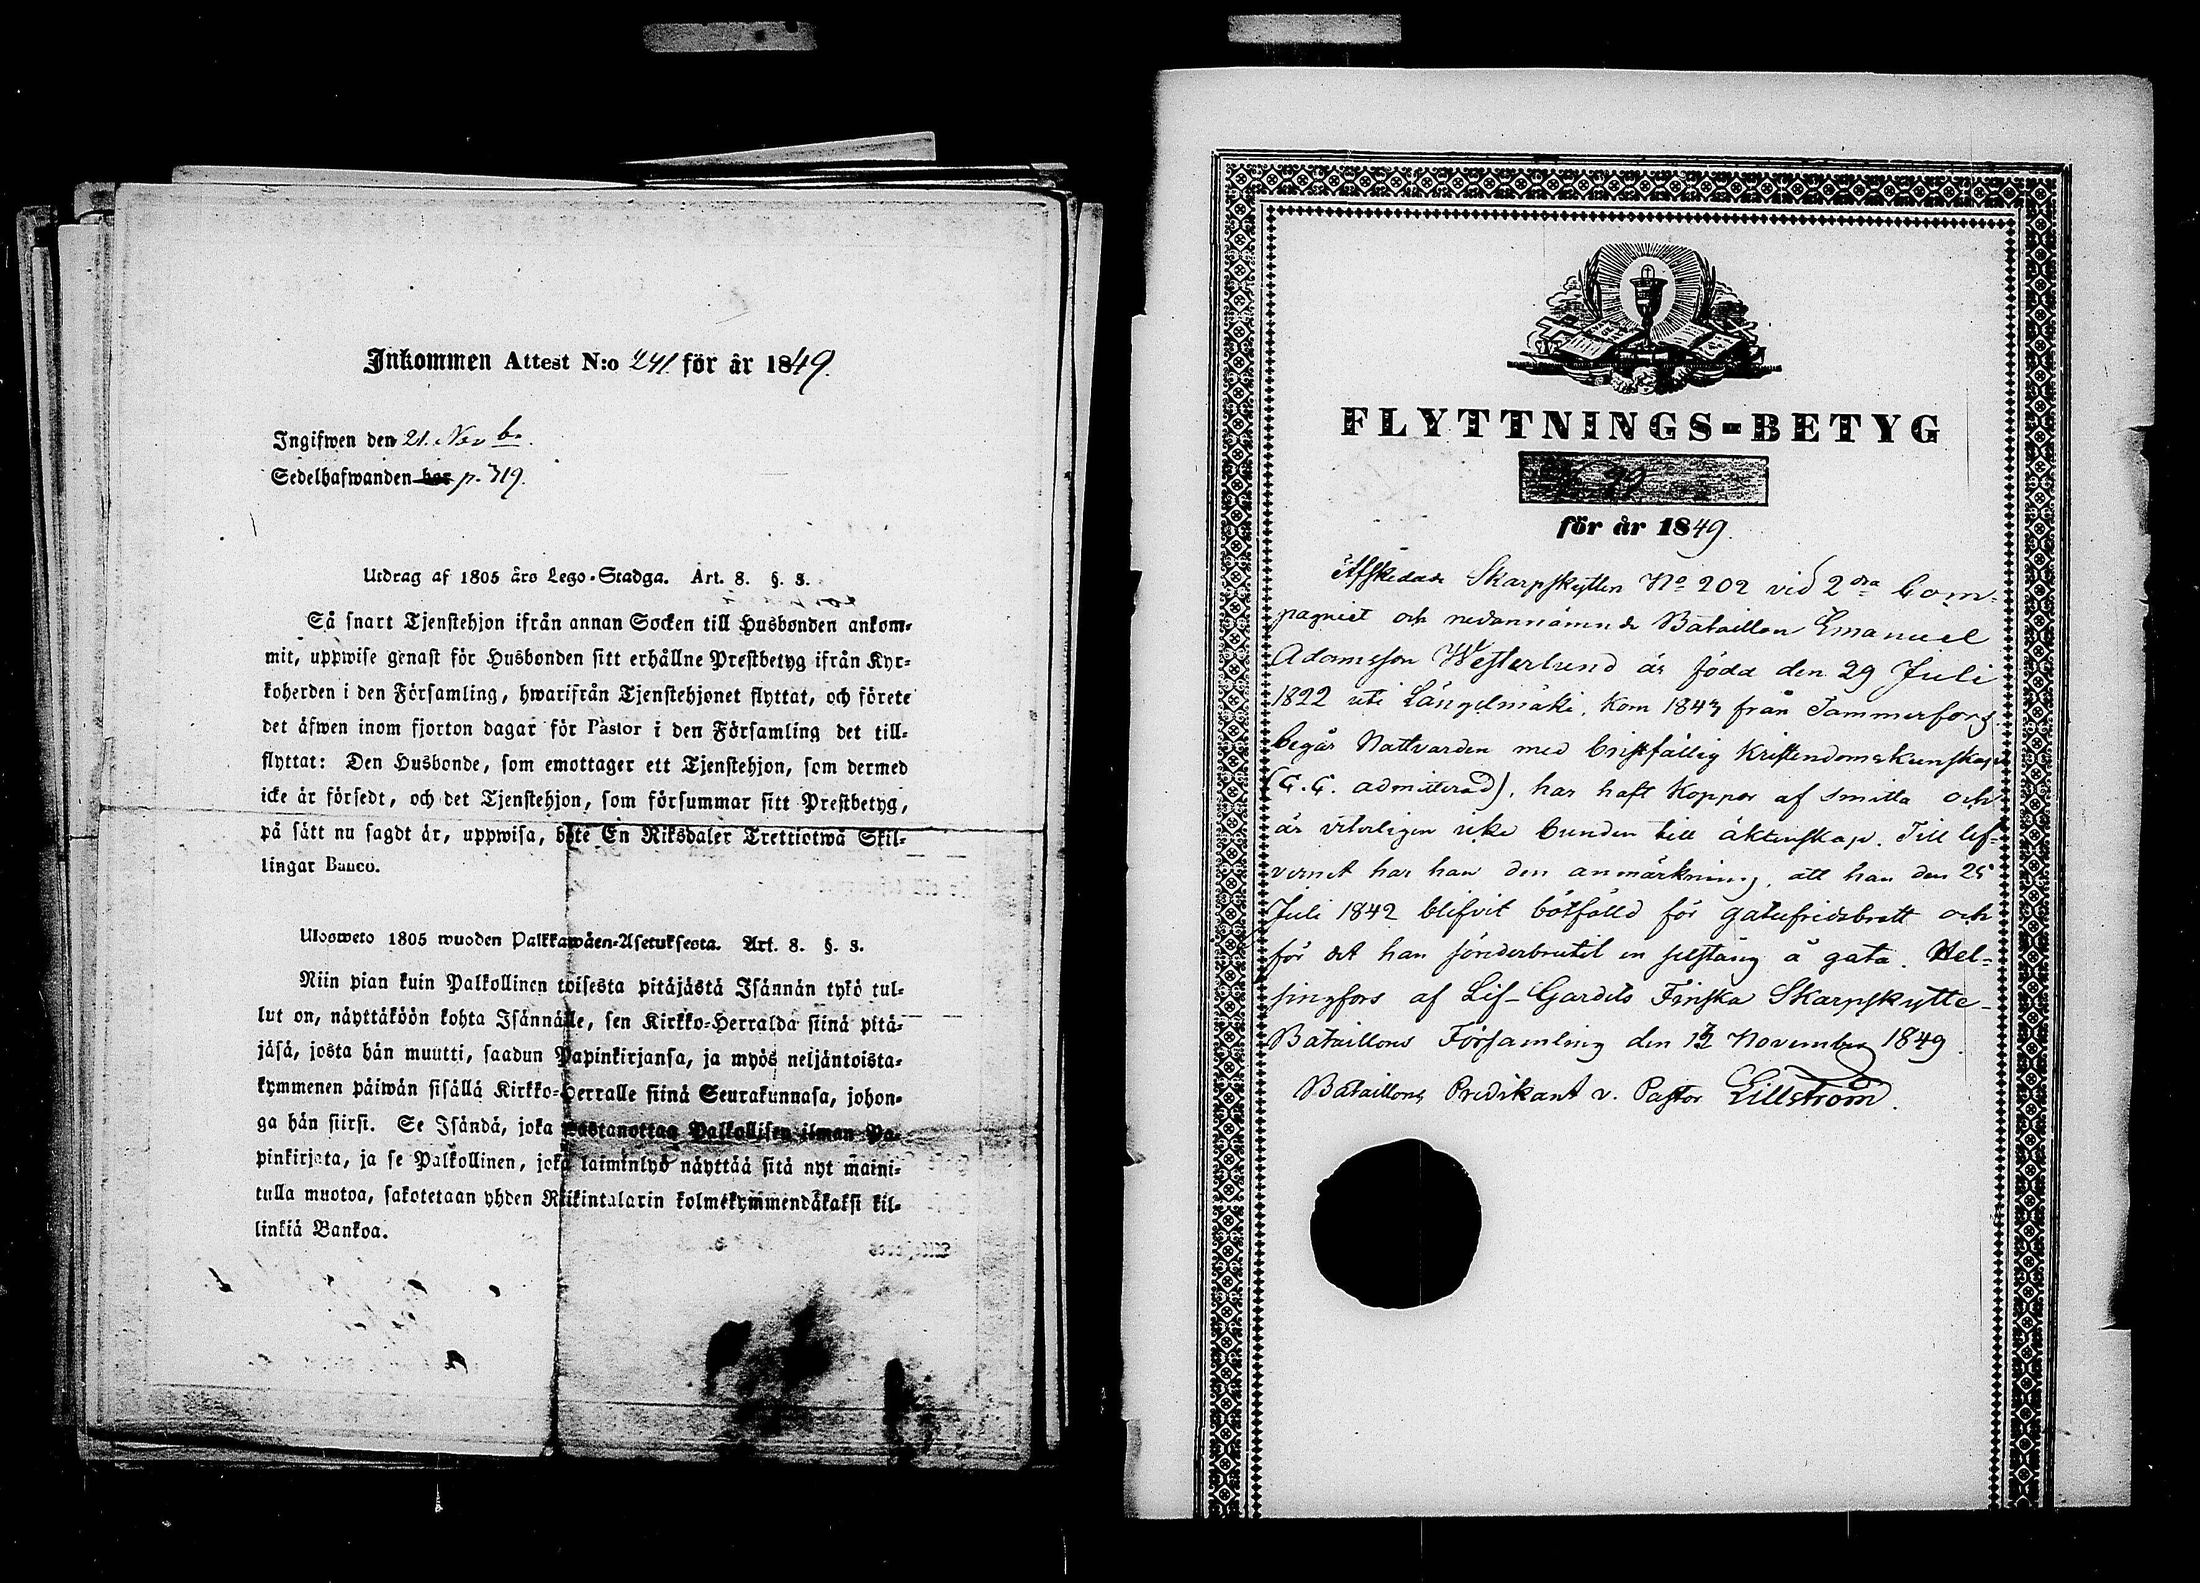 Inkommen Attest N:o 241. för år 1849.
Ingifwen den 21. Nov br.
Sedelhafwanden hos p. 319.
Utdrag af 1805 års Lego-Stadga. Art. 8. §. 3.
Så snart Tjenstehjon ifrån annan Socken till Husbonden ankom-
mit, uppwise genast för Husbonden sitt erhållne Prestbetyg ifrån Kyr-
koherden i den Församling, hwarifrån Tjenstehjonet flyttat, och förete
det äfwen inom fjorton dagar för Pastor i den Församling det till-
flyttat: Den Husbonde, som emottager ett Tjenstehjon, som dermed
icke är försedt, och det Tjenstehjon, som försummar sitt Prestbetyg,
på sätt nu sagdt är, uppwisa, böte En Riksdaler Trettiotwå Skil-
lingar Banco.
Ulosweto 1805 wuoden Palkkawäen-Asetuksesta. Art. 8. §. 3.
Niin pian kuin Palkollinen toisesta pitäjästä Isännän tykö tul-
lut on, näyttäköön kohta Isännälle, sen Kirkko-Herralda siinä pitä-
jäsä, josta hän muutti, saadun Papinkirjansa, ja myös neljäntoista-
kymmenen päiwän sisällä Kirkko-Herralle siinä Seurakunnasa, johon-
ga hän siirsi. Se Isändä, joka wastanottaa Palkollisen ilman Pa-
pinkirjata, ja se Palkollinen, joka laiminlyö näyttää sitä nyt maini-
tulla muotoa, sakotetaan yhden Riikintalarin kolmekymmendäkaksi kil-
linkiä Bankoa.
FLYTTNINGS-BETYG
för år 1849.
Afskedade Skarpskytten No 202 vid 2dra Com-
pagniet och nedannämnde Bataillon Emanuel
Adamsson Westerlund är född den 29 Juli
1822 uti Längelmäki, kom 1843 från Tammerfors,
begår Nattvarden med bristfällig Kristendomskunskap
(G. G. admitterad), har haft Koppor af smitta och
är veterligen icke bunden till äktenskap. Till lef-
vernet har han den anmärkning, att han den 25
Juli 1842 blifvit bötfälld för gatufridsbrott och
för det han sönderbrutit en selstång å gata. Hel-
singfors af Lif-Gardets Finska Skarpskytte-
Bataillons Församling den 12 November 1849.
Bataillons Predikant v. Pastor Lillström.